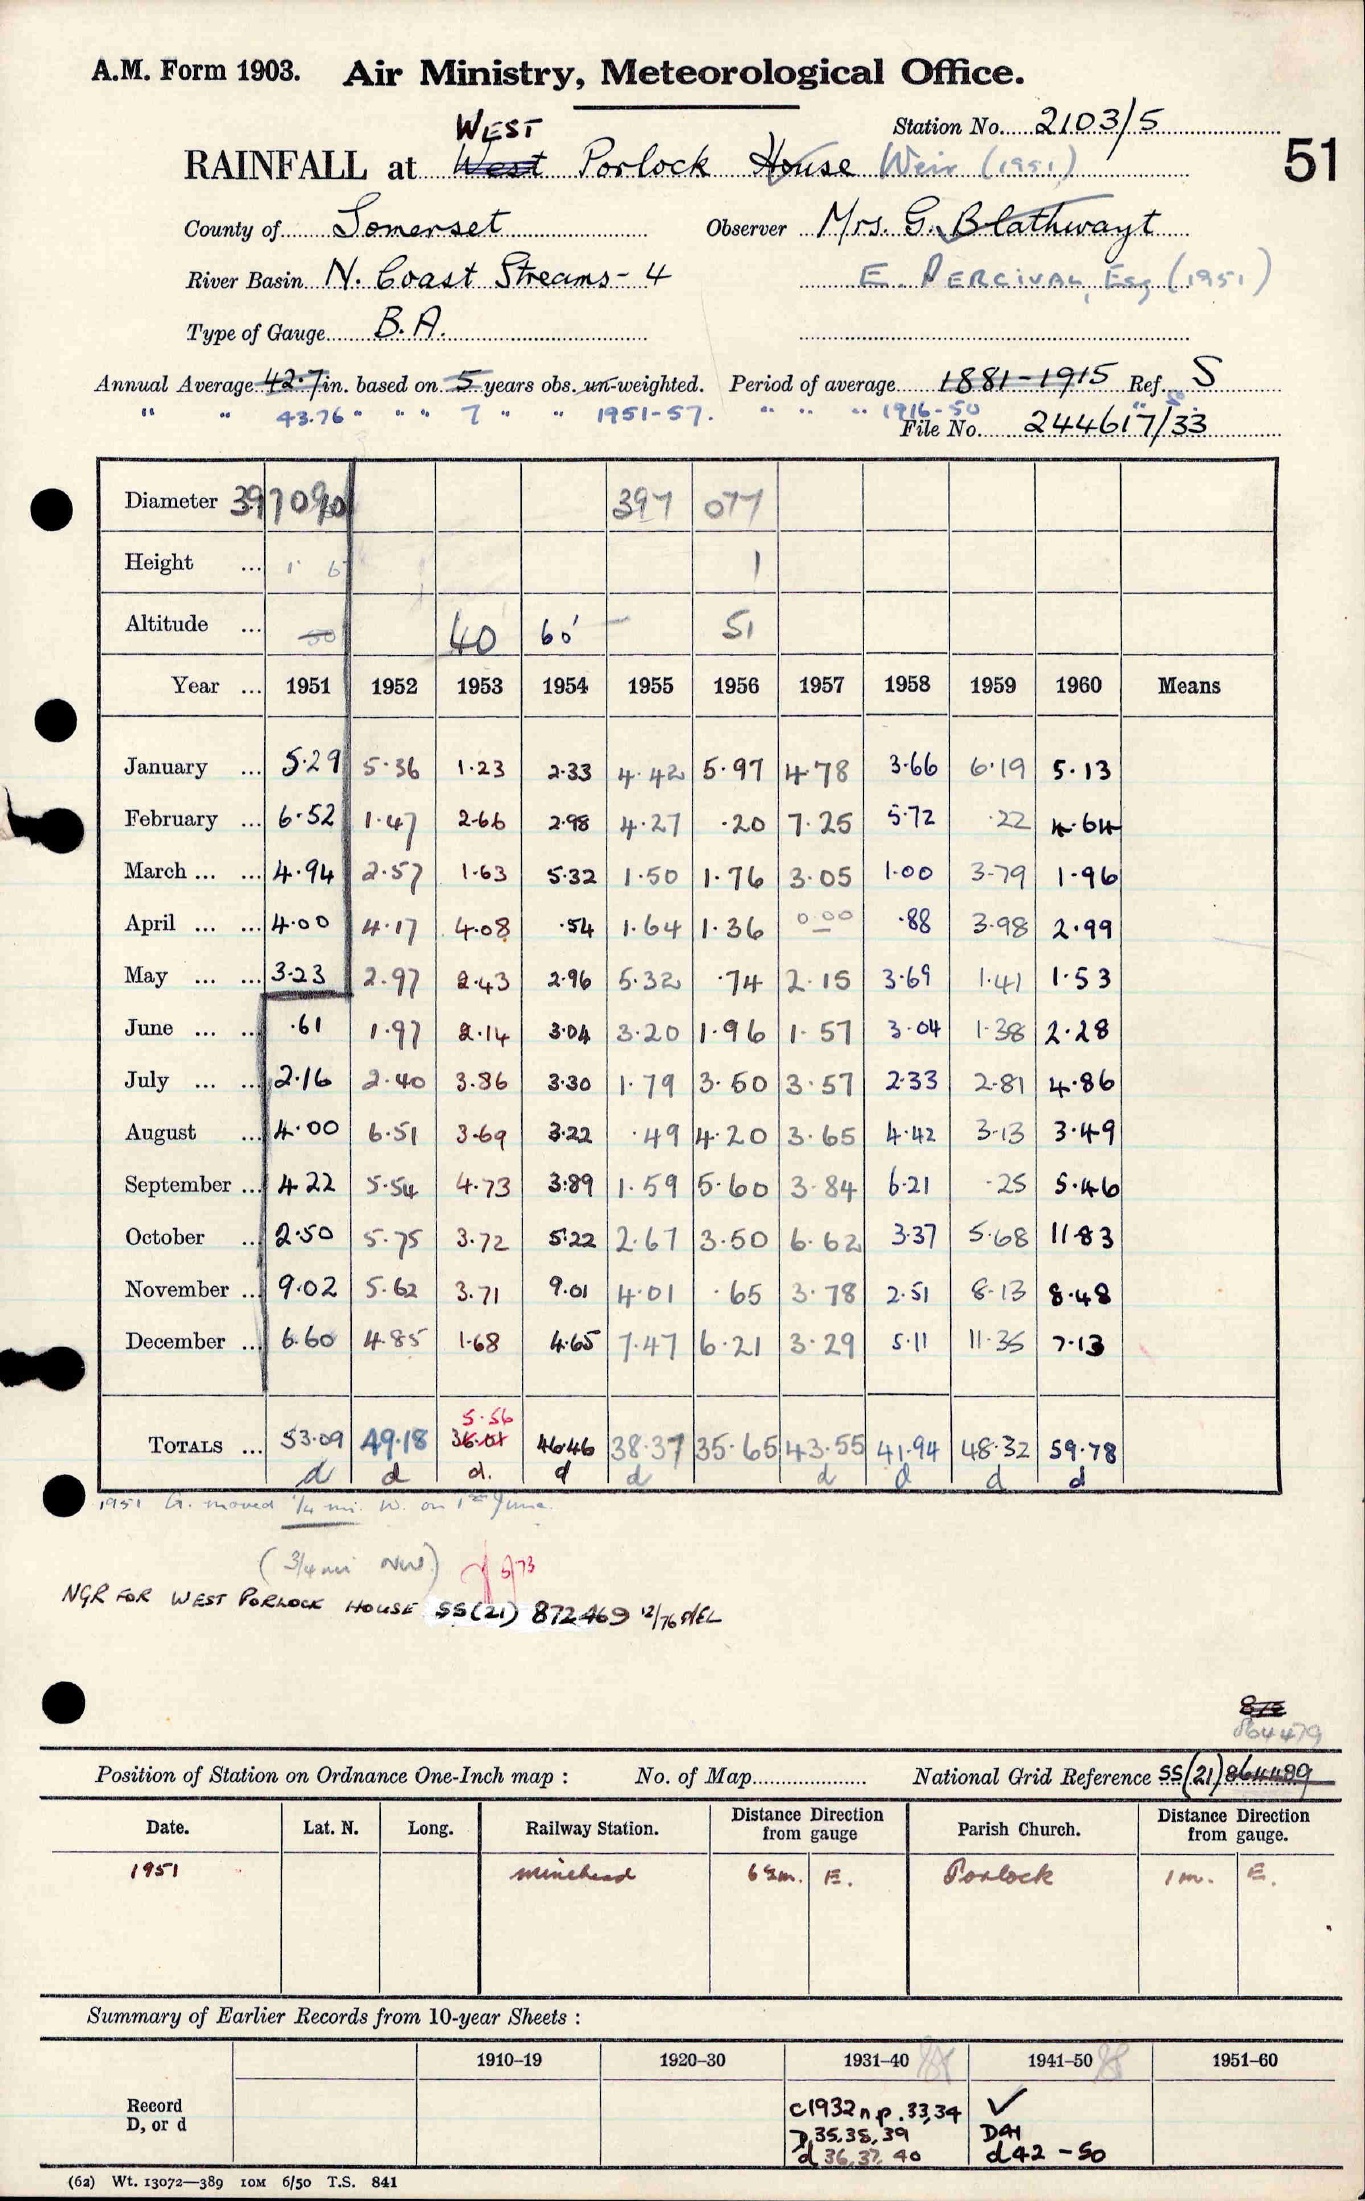 A.M. Form 1903. Air Ministry, Meteorological Office.
Station No. 2103/5
WEST
RAINFALL at West Porlock House Weir (1951)
51
County of Somerset Observer Mrs. G. Blathwayt
River Basin N. Coast Streams - 4 E. PERCIVAL, Esq (1951)
Type of Gauge B.A.
Annual Average 42.7 in. based on 5 years obs. un-weighted. Period of average 1881-1915 Ref. S
" " 43.76 " " " 7 " " 1951-57. " " " 1916-50
File No. 244617/33
Diameter 397090 397 077
Height ... 1 6 1
Altitude ... 50 40 60' 51
Year ... 1951 1952 1953 1954 1955 1956 1957 1958 1959 1960 Means
January ... 5.29 5.36 1.23 2.33 4.42 5.97 4.78 3.66 6.19 5.13
February ... 6.52 1.47 2.66 2.98 4.27 .20 7.25 5.72 .22 4.64
March ... ... 4.94 2.57 1.63 5.32 1.50 1.76 3.05 1.00 3.79 1.96
April ... ... 4.00 4.17 4.08 .54 1.64 1.36 0.00 .88 3.98 2.99
May ... ... 3.23 2.97 2.43 2.96 5.32 .74 2.15 3.69 1.41 1.53
June ... ... .61 1.97 2.14 3.04 3.20 1.96 1.57 3.04 1.38 2.28
July ... ... 2.16 2.40 3.86 3.30 1.79 3.50 3.57 2.33 2.81 4.86
August ... 4.00 6.51 3.69 3.22 .49 4.20 3.65 4.42 3.13 3.49
September ... 4.22 5.54 4.73 3.89 1.59 5.60 3.84 6.21 .25 5.46
October ... 2.50 5.75 3.72 5.22 2.67 3.50 6.62 3.37 5.68 11.83
November ... 9.02 5.62 3.71 9.01 4.01 .65 3.78 2.51 8.13 8.48
December ... 6.60 4.85 1.68 4.65 7.47 6.21 3.29 5.11 11.35 7.13
5.56
TOTALS ... 53.09 49.18 36.01 46.46 38.37 35.65 43.55 41.94 48.32 59.78
d d d. d d d d d d
1951 G. moved 1/4 mi. W. on 1st June.
(3/4 mi NW) 5/73
NGR FOR WEST PORLOCK HOUSE SS(21) 872469 12/76
872
864479
Position of Station on Ordnance One-Inch map : No. of Map National Grid Reference SS(21) 864489
Date. Lat. N. Long. Railway Station. Distance Direction from gauge Parish Church. Distance Direction from gauge.
1951 Minehead 6½m. E. Porlock 1 m. E.
Summary of Earlier Records from 10-year Sheets :
1910–19 1920–30 1931–40 1941–50 1951–60
Record
D, or d
c1932 n.p. 33,34 ✓
D 35.38,39 D41
d 36,37, 40 d42 - 50
(62) Wt. 13072—389 10M 6/50 T.S. 841